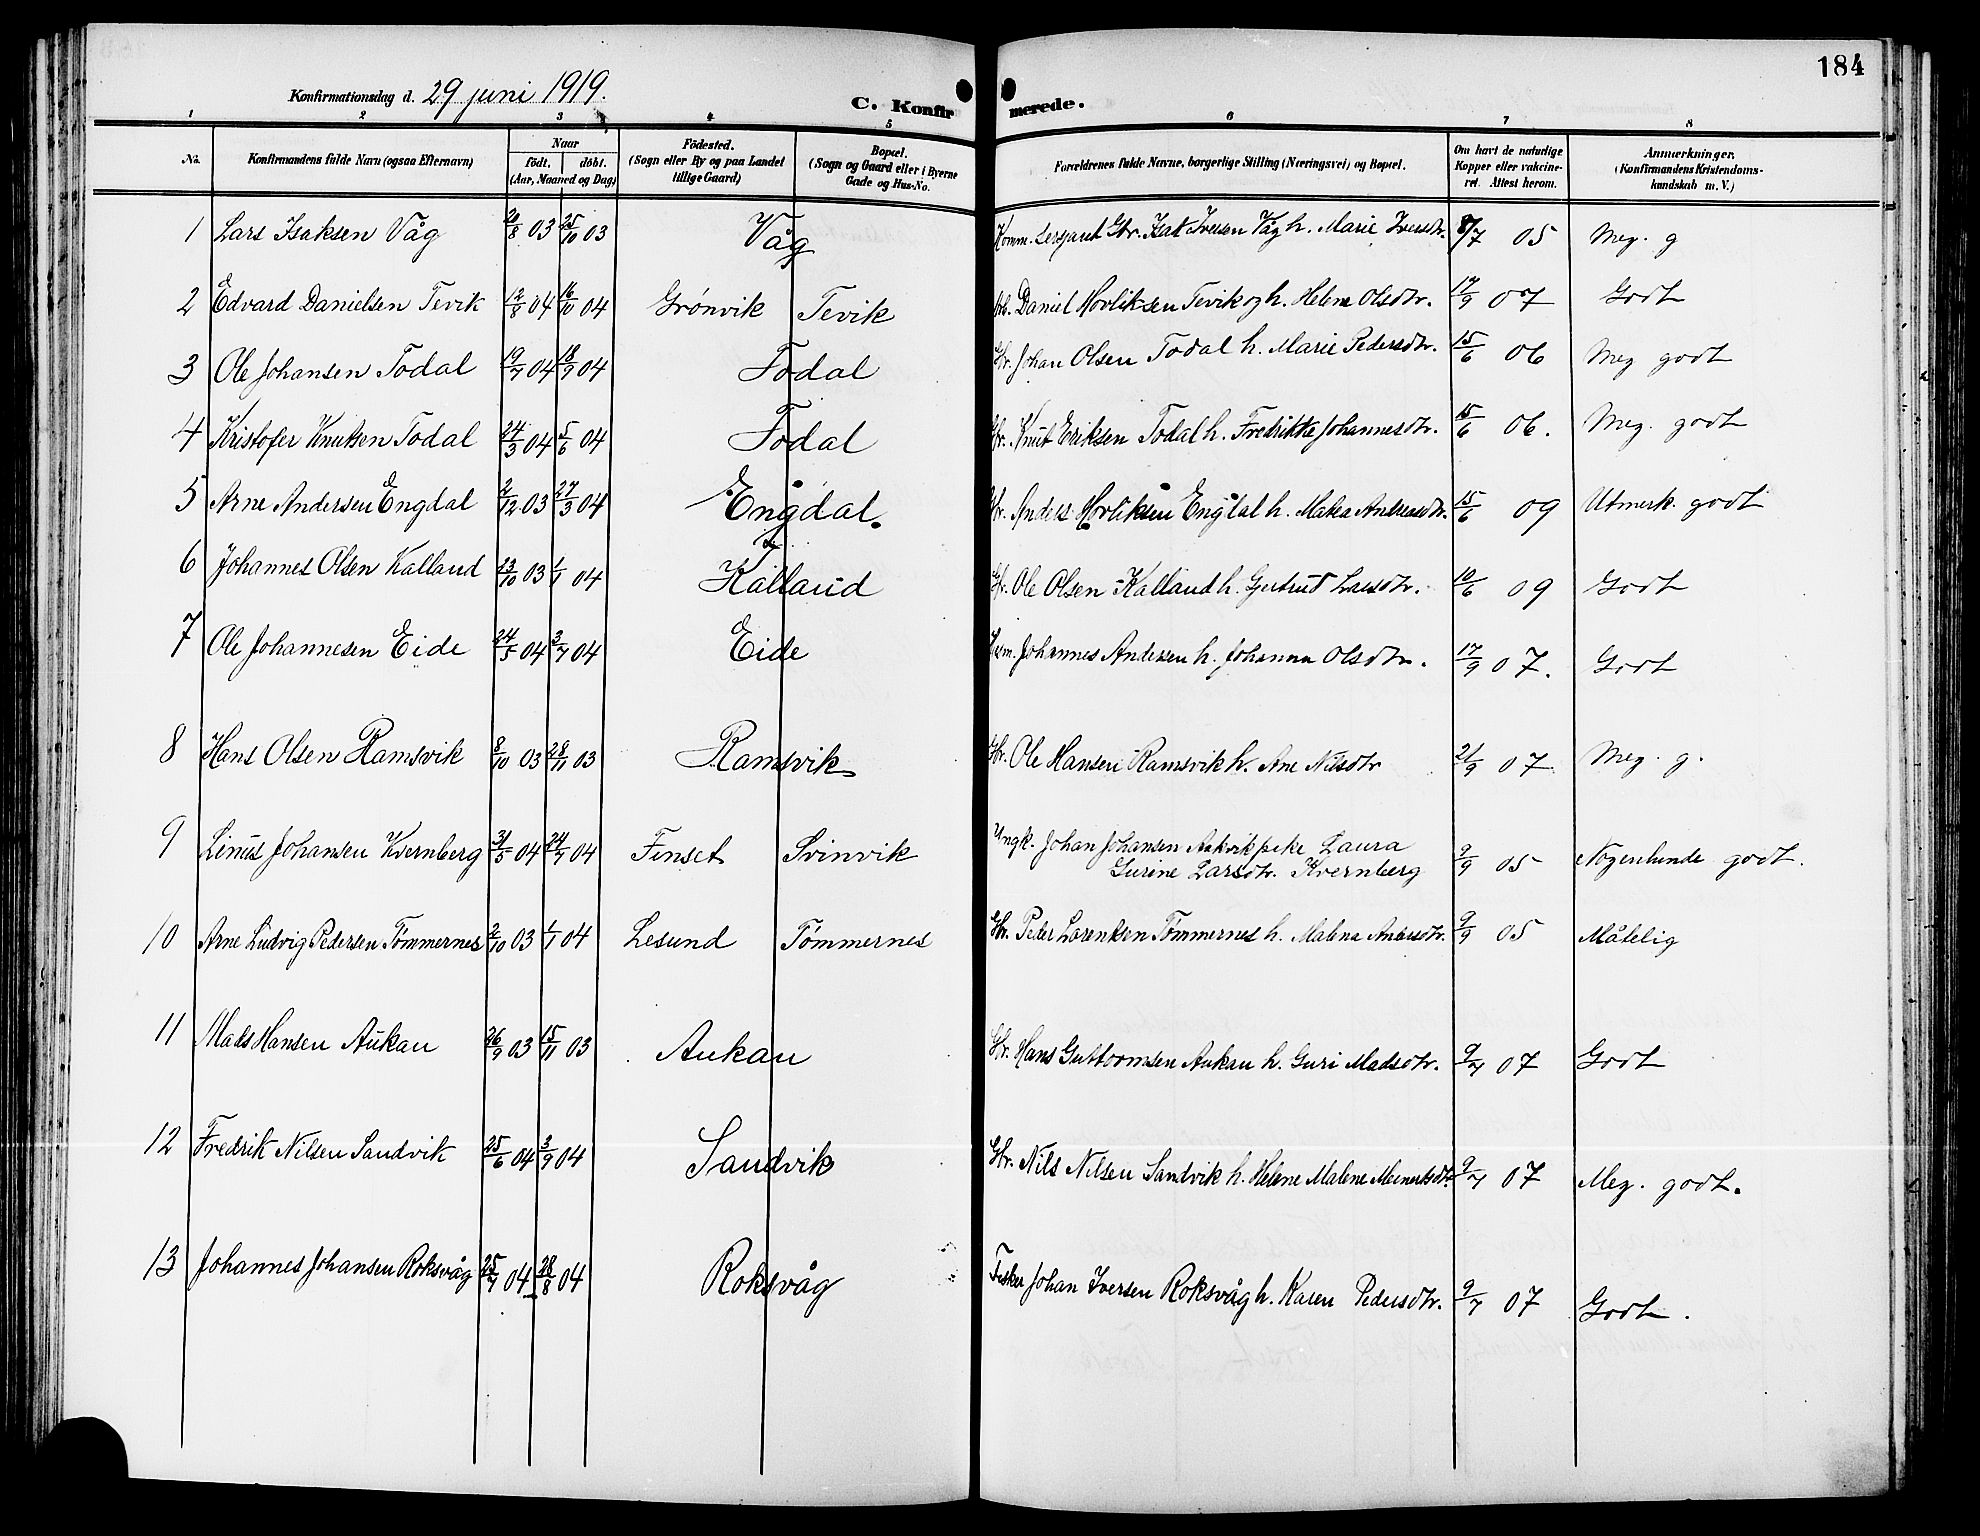 184
Konfirmationsdag d. 29 juni 1919.
C. Konfirmerede.
1 2 3 4 5 6 7 8
No. Konfirmandens fulde Navn (ogsaa Efternavn) Naar födt. döbt. (Aar, Maaned og Dag) Födested. (Sogn eller By og paa Landet tillige Gaard) Bopæl. (Sogn og Gaard eller i Byerne Gade og Hus-No. Forældrenes fulde Navne, borgerlige Stilling (Næringsvei) og Bopæl. Om havt de naturlige Kopper eller vakcineret. Attest herom. Anmærkninger. (Konfirmandens Kristendomskundskab m. V.)
1 Lars Isaksen Våg 20/8 03 25/10 03 Våg Komm. Sersjant Gbr. Isak Iversen Våg h. Marie Iversdtr. 8/7 05 Meg. g
2 Edvard Danielsen Tevik 12/8 04 16/10 04 Grønvik Tevik Daniel Hovliksen Tevik og h. Helene Olsdtr. 17/9 07 Godt
3 Ole Johansen Todal 19/7 04 18/9 04 Todal Gbr. Johan Olsen Todal h. Marie Pedersdtr. 15/6 06 Meg godt
4 Kristofer Knutsen Todal 24/3 04 5/6 04 Todal Gbr. Knut Eriksen Todal h. Fredrikke Johannesdtr. 15/6 06. Meg. godt
5 Arne Andersen Engdal 2/12 03 27/3 04 Engdal. Gbr. Anders Hovliksen Engdal h. Malea Andreasdtr. 15/6 09 Utmerk. godt
6 Johannes Olsen Kalland 23/10 03 1/1 04 Kalland Gbr. Ole Olsen Kalland h. Gjertrud Larsdtr. 10/6 09 Godt
7 Ole Johannesen Eide 24/5 04 3/7 04 Eide Husm. Johannes Andersen h. Johanna Olsdtr. 17/9 07. Godt
8 Hans Olsen Ramsvik 8/10 03 28/11 03 Ramsvik Gbr. Ole Hansen Ramsvik h. Ane Nilsdtr 21/9 07 Meg. g.
9 Linus Johansen Kvernberg 31/5 04 24/7 04 Finset Svinvik Ungk. Johan Johansen Aakvik pike Laura
Gurine Larsdtr. Kvernberg 9/9 05 Nogenlunde godt.
10 Arne Ludvig Pedersen Tømmernes 2/10 03 1/1 04 Lesund Tømmernes Gbr. Peter Lorentsen Tømmernes h. Malena Andersdtr. 9/9 05 Måtelig
11 Mads Hansen Aukan 26/9 03 15/11 03 Aukan Gbr. Hans Guttormsen Aukan h. Guri Madsdtr. 9/7 07 Godt
12 Fredrik Nilsen Sandvik 25/6 04 3/9 04 Sandvik Gbr. Nils Nilsen Sandvik h. Helene Malene Meinertsdtr. 9/7 07 Meg. godt.
13 Johannes Johansen Roksvåg 25/7 04 28/8 04 Roksvåg Fisker Johan Iversen Roksvåg h. Karen Pedersdtr. 9/7 07 Godt.